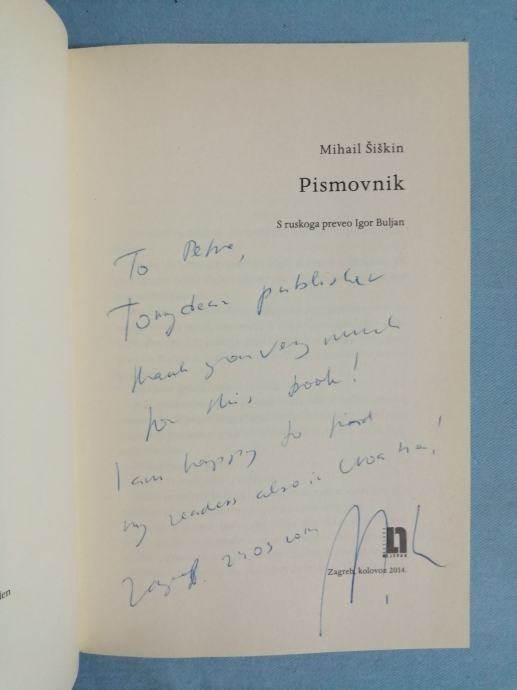 Mihail Šiškin
Pismovnik
S ruskoga preveo Igor Buljan
To Petra,
To my dear publisher
thank you very much
for this book!
I am happy to find
my readers also in Croatia!
Zagreb.
Zagreb, kolovoz 2014.